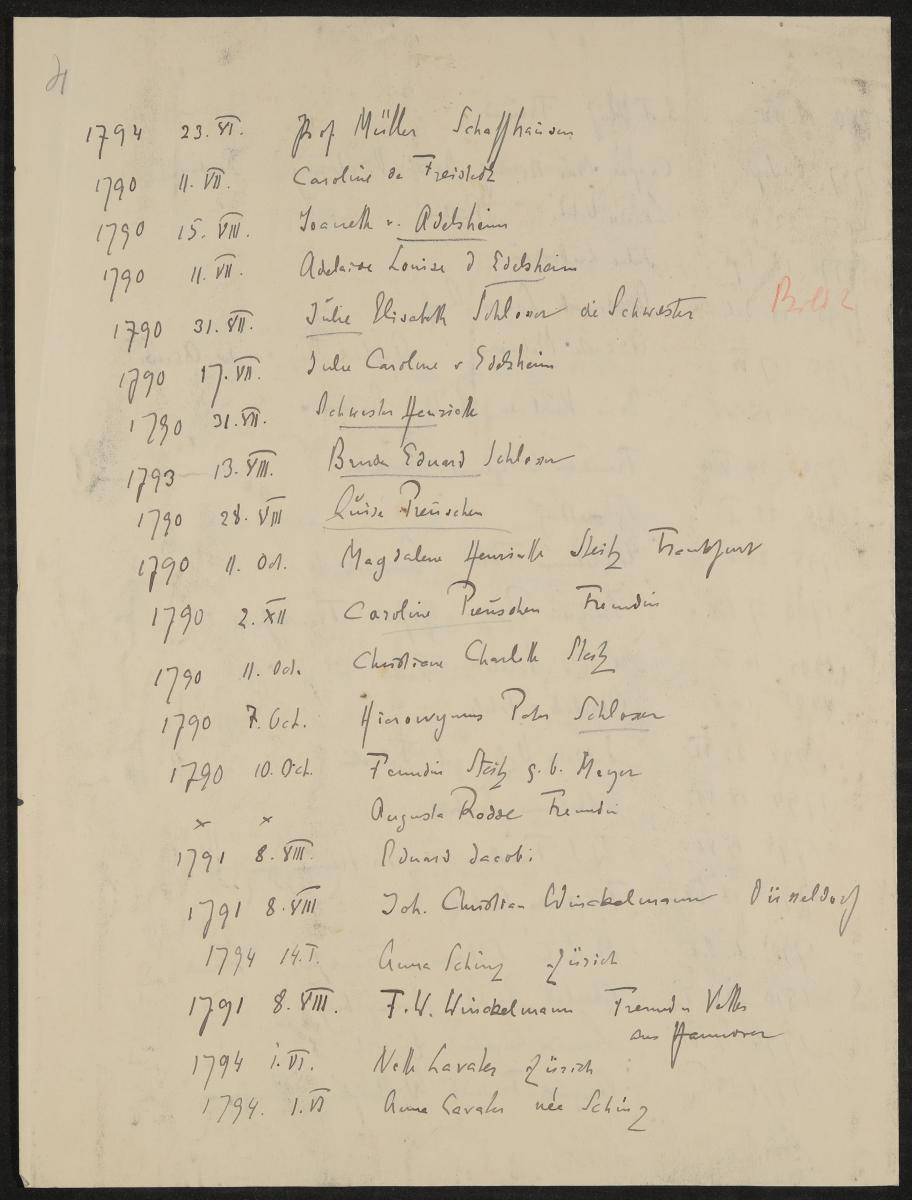 1794 23. VI. Prof Müller Schaffhausen
1790 11. VII. Caroline de
1790 15. VIII. v. Adelsheim
1790 11. VII. Adelaide Louise d Edelsheim
1790 31. VII. Julie Elisabeth Schlosser die Schwester
1790 17. VII. Julie Caroline v Edelsheim
1790 31. VII. Schwester Henriette
1793 13. VIII. Bruder Eduard Schlosser
1790 28. VIII Luise Preuschen
1790 11. Oct. Magdalene Henriette Steitz Frankfurt
1790 2. XII Caroline Preuschen Freundin
1790 11. Oct. Christiane Charlotte Steitz
1790 7. Oct. Hieronymus Peter Schlosser
1790 10. Oct. Freundin Steitz g. b. Meyer
x x Augusta Rodde Freundin
1791 8. VIII. Eduard Jacobi
1791 8. VIII Joh. Christian Winckelmann Düsseldorf
1794 14. I. Anna Schinz Zürich
1791 8. VIII. F. W. Winckelmann Freund u Vetter
aus Hannover
1794 1. VI. Nette Lavater Zürich
1794. 1. VI Anna Lavater née Schinz